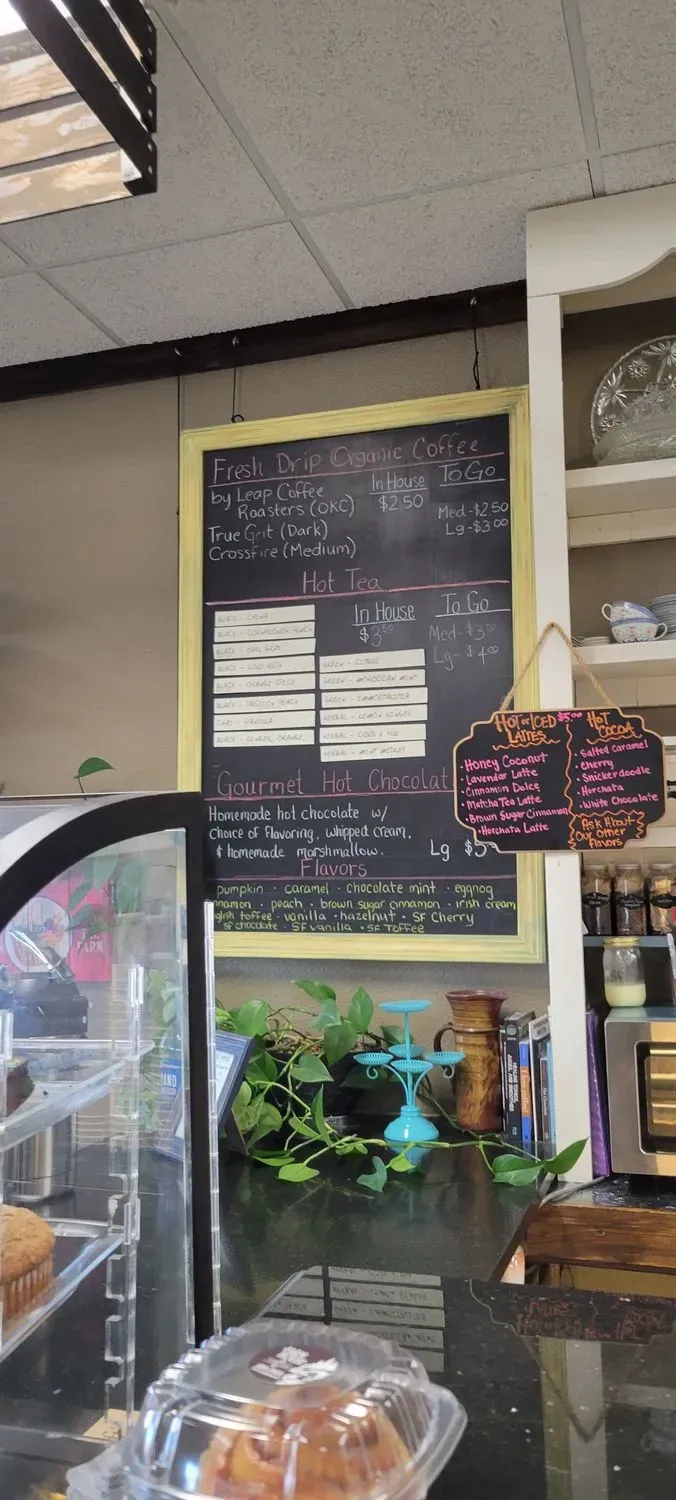 Fresh Drip Organic Coffee
by Leap Coffee
Roasters (OKC)
True Grit (Dark)
Crossfire (Medium)
In House
$2.50
To Go
Med-$2.50
Lg-$3.00
Hot Tea
BLACK - CORNFLOWER PEACH
BLACK - EARL GREY
BLACK - GOLD RUSH
BLACK - ORANGE SPICE
BLACK - PASSION PEACH
CHAI - VANILLA
BLACK - GINGER ORANGE
In House
$3.50
To Go
Med-$3.50
Lg-$4.00
GREEN - CITRUS
GREEN - MOROCCAN MINT
GREEN - IMMORTALITEA
HERBAL - LEMON GINGER
HERBAL - MINT MEDLEY
Gourmet Hot Chocolat
Homemade hot chocolate w/
choice of flavoring, whipped cream,
& homemade marshmallow.
Lg $5
Flavors
pumpkin · caramel · chocolate mint · eggnog
nnamon · peach · brown sugar cinnamon · irish cream
glish toffee · vanilla · hazelnut · SF Cherry
SF chocolate · SF vanilla · SF Toffee
Hot or Iced $5.00
Lattes
Honey Coconut
Lavendar Latte
Cinnamon Dolce
Matcha Tea Latte
Brown Sugar Cinnamon
Horchata Latte
Hot
Cocoa
Salted Caramel
Cherry
Snickerdoodle
Horchata
White Chocolate
Ask About
Our other
flavors